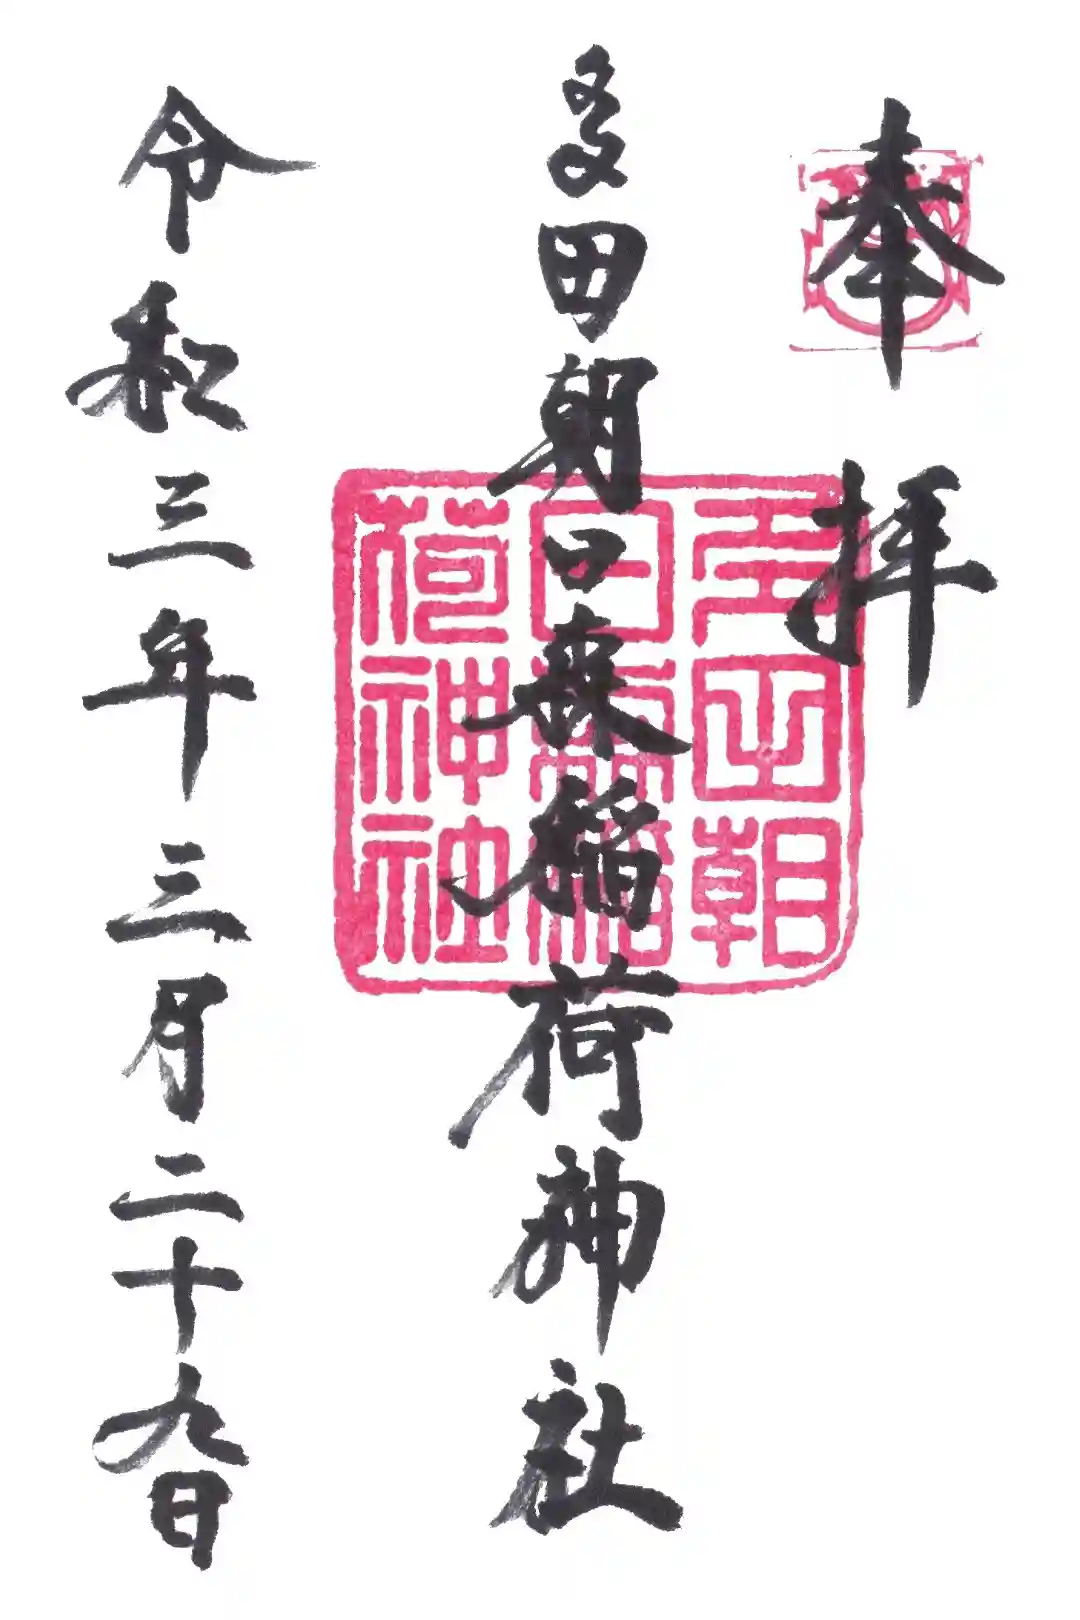 奉拝
多田朝日森稲荷神社
多田朝
日森稲
荷神社
令和三年三月二十九日